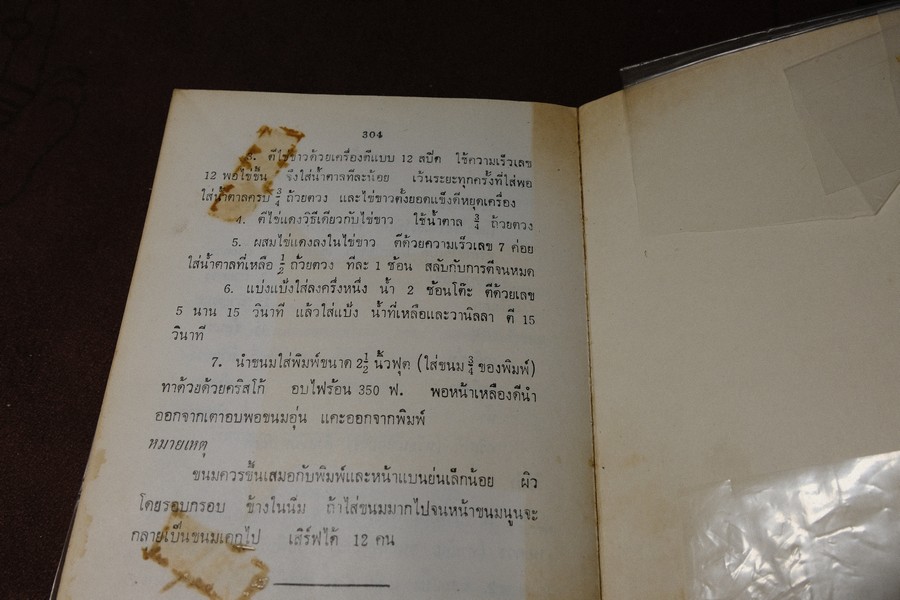 304
3. ตีไข่ขาวด้วยเครื่องตีแบบ 12 สปีด ใช้ความเร็วเลข
12 พอไข่ขึ้น จึงใส่น้ำตาลทีละน้อย เว้นระยะทุกครั้งที่ใส่พอ
ใส่น้ำตาลครบ 3/4 ถ้วยตวง และไข่ขาวตั้งยอดแข็งดีหยุดเครื่อง
4. ตีไข่แดงวิธีเดียวกับไข่ขาว ใช้น้ำตาล 3/4 ถ้วยตวง
5. ผสมไข่แดงลงในไข่ขาว ตีด้วยความเร็วเลข 7 ค่อย
ใส่น้ำตาลที่เหลือ 1/2 ถ้วยตวง ทีละ 1 ช้อน สลับกับการตีจนหมด
6. แบ่งแป้งใส่ลงครึ่งหนึ่ง น้ำ 2 ช้อนโต๊ะ ตีด้วยเลข
5 นาน 15 วินาที แล้วใส่แป้ง น้ำที่เหลือและวานิลลา ตี 15
วินาที
7. นำขนมใส่พิมพ์ขนาด 2 1/2 นิ้วฟุต (ใส่ขนม 3/4 ของพิมพ์)
ทาด้วยด้วยคริสโก้ อบไฟร้อน 350 ฟ. พอหน้าเหลืองดีนำ
ออกจากเตาอบพอขนมอุ่น แคะออกจากพิมพ์
หมายเหตุ
ขนมควรขึ้นเสมอกับพิมพ์และหน้าแบนย่นเล็กน้อย ผิว
โดยรอบกรอบ ข้างในนิ่ม ถ้าใส่ขนมมากไปจนหน้าขนมนูนจะ
กลายเป็นขนมเค้กไป เสิร์ฟได้ 12 คน